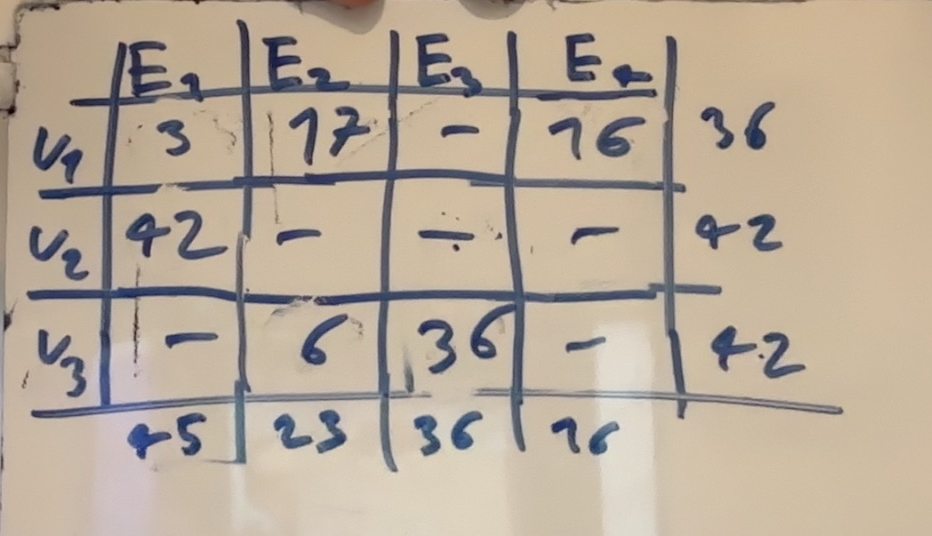 E1 E2 E3 E4
V1 3 17 - 16 36
V2 42 - - - 42
V3 - 6 36 - 42
45 23 36 16